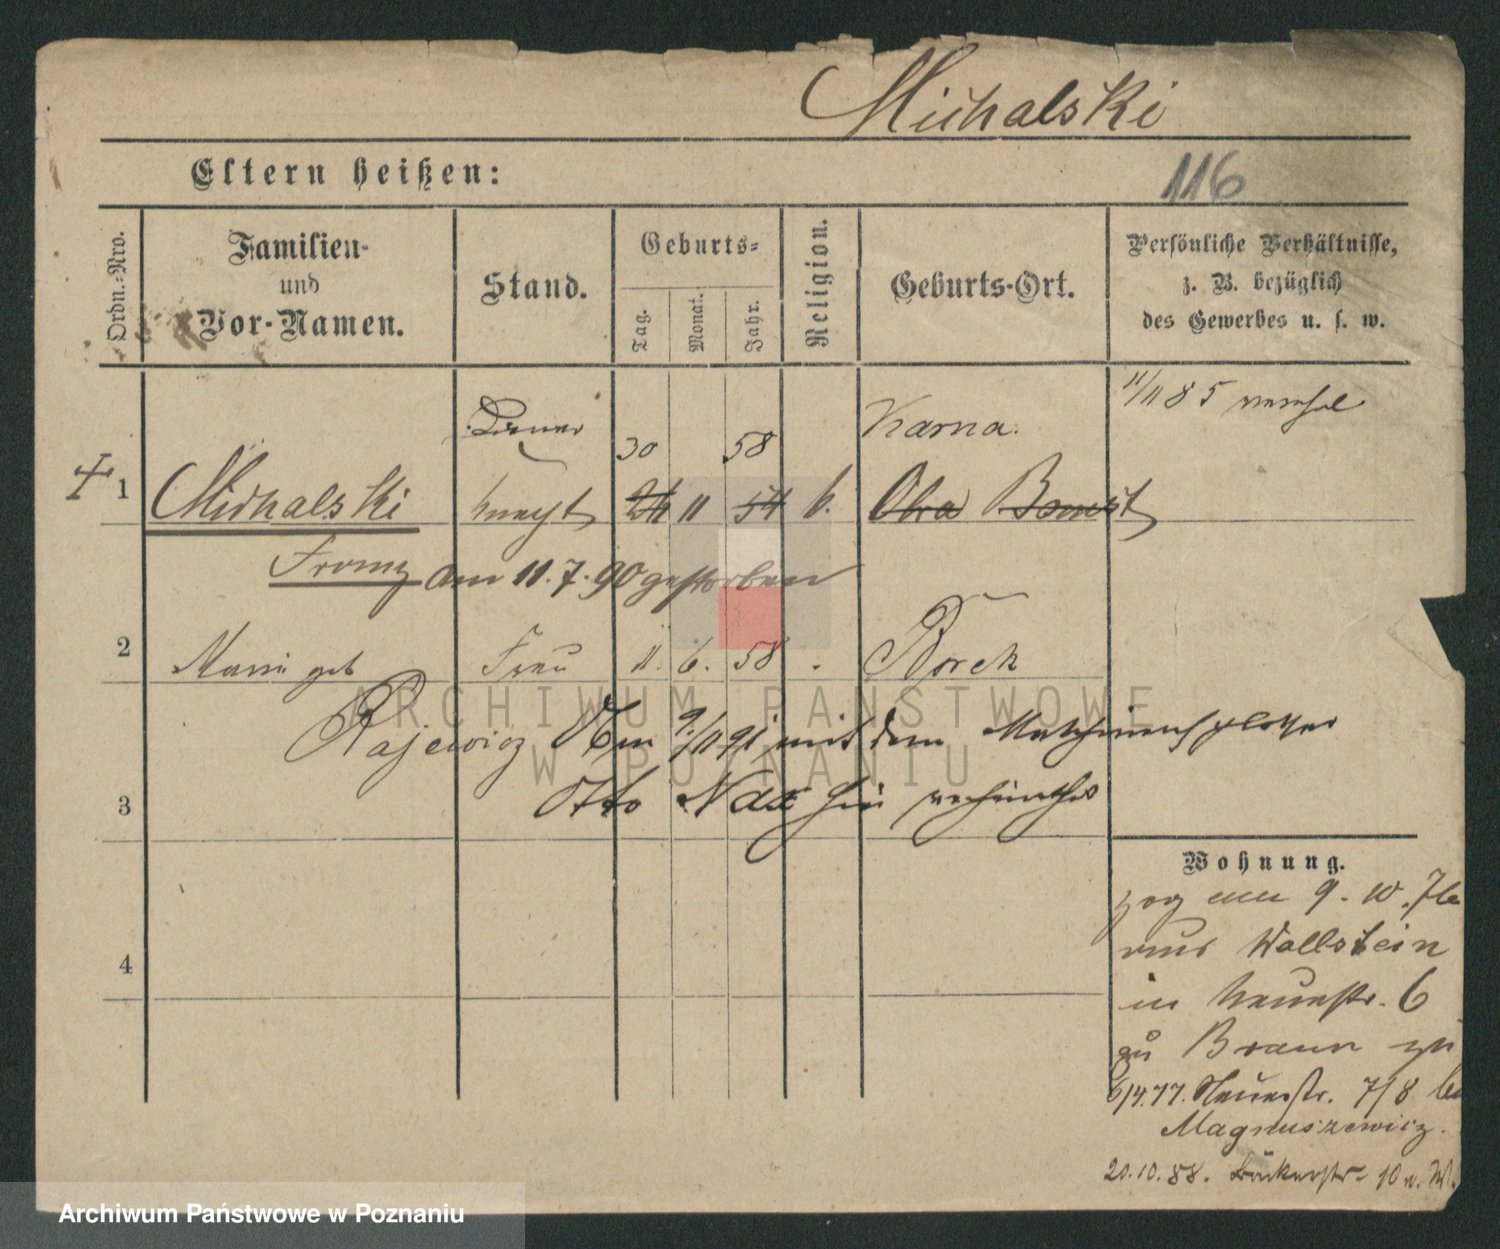 Michalski
Eltern heißen:
116
Ordn.-Nro.
Familien-
und
Vor-Namen.
Stand.
Geburts-
Tag.
Monat.
Jahr.
Religion.
Geburts-Ort.
Persönliche Verhältnisse,
z. B. bezüglich
des Gewerbes u. s. w.
11/11 85
30 58 Karna.
1 Michalski knecht 11 54 k. Obra Bomst
Franz am 11. 7. 90 gestorben
2 Marie geb Frau 11. 6. 58 Borek
Rajewicz Am 9/11 91 mit dem
3 Otto
Wohnung.
zog am 9. 10. 76
aus Wollstein
in Neuestr. 6
zu Braun
6/4.77. Neuestr. 7/8
Magnuszewicz.
20.10.88. 10
4
ARCHIWUM PAŃSTWOWE
W POZNANIU
Archiwum Państwowe w Poznaniu